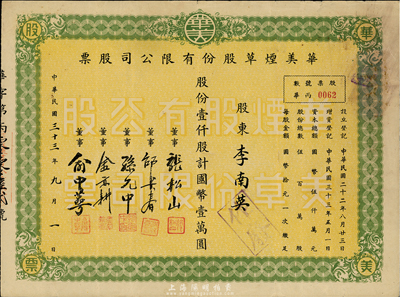 華美煙草股份有限公司股票
股
華
票
美
華美
股票
號數
華丙
0062
設立登記 中華民國二十二年八月廿三日
增資登記 中華民國三十三年五月一日
資本總額 國幣伍仟萬元
股份總數 伍百萬股
每股金額 國幣拾元一次繳足
股東 李南英
股份壹仟股計國幣壹萬圓
董事 張松山
董事 邱長青
董事 孫允中
董事
董事 俞中華
中華民國三十三年九月一日
華美煙草股份有限公司股票
上海陽明拍賣